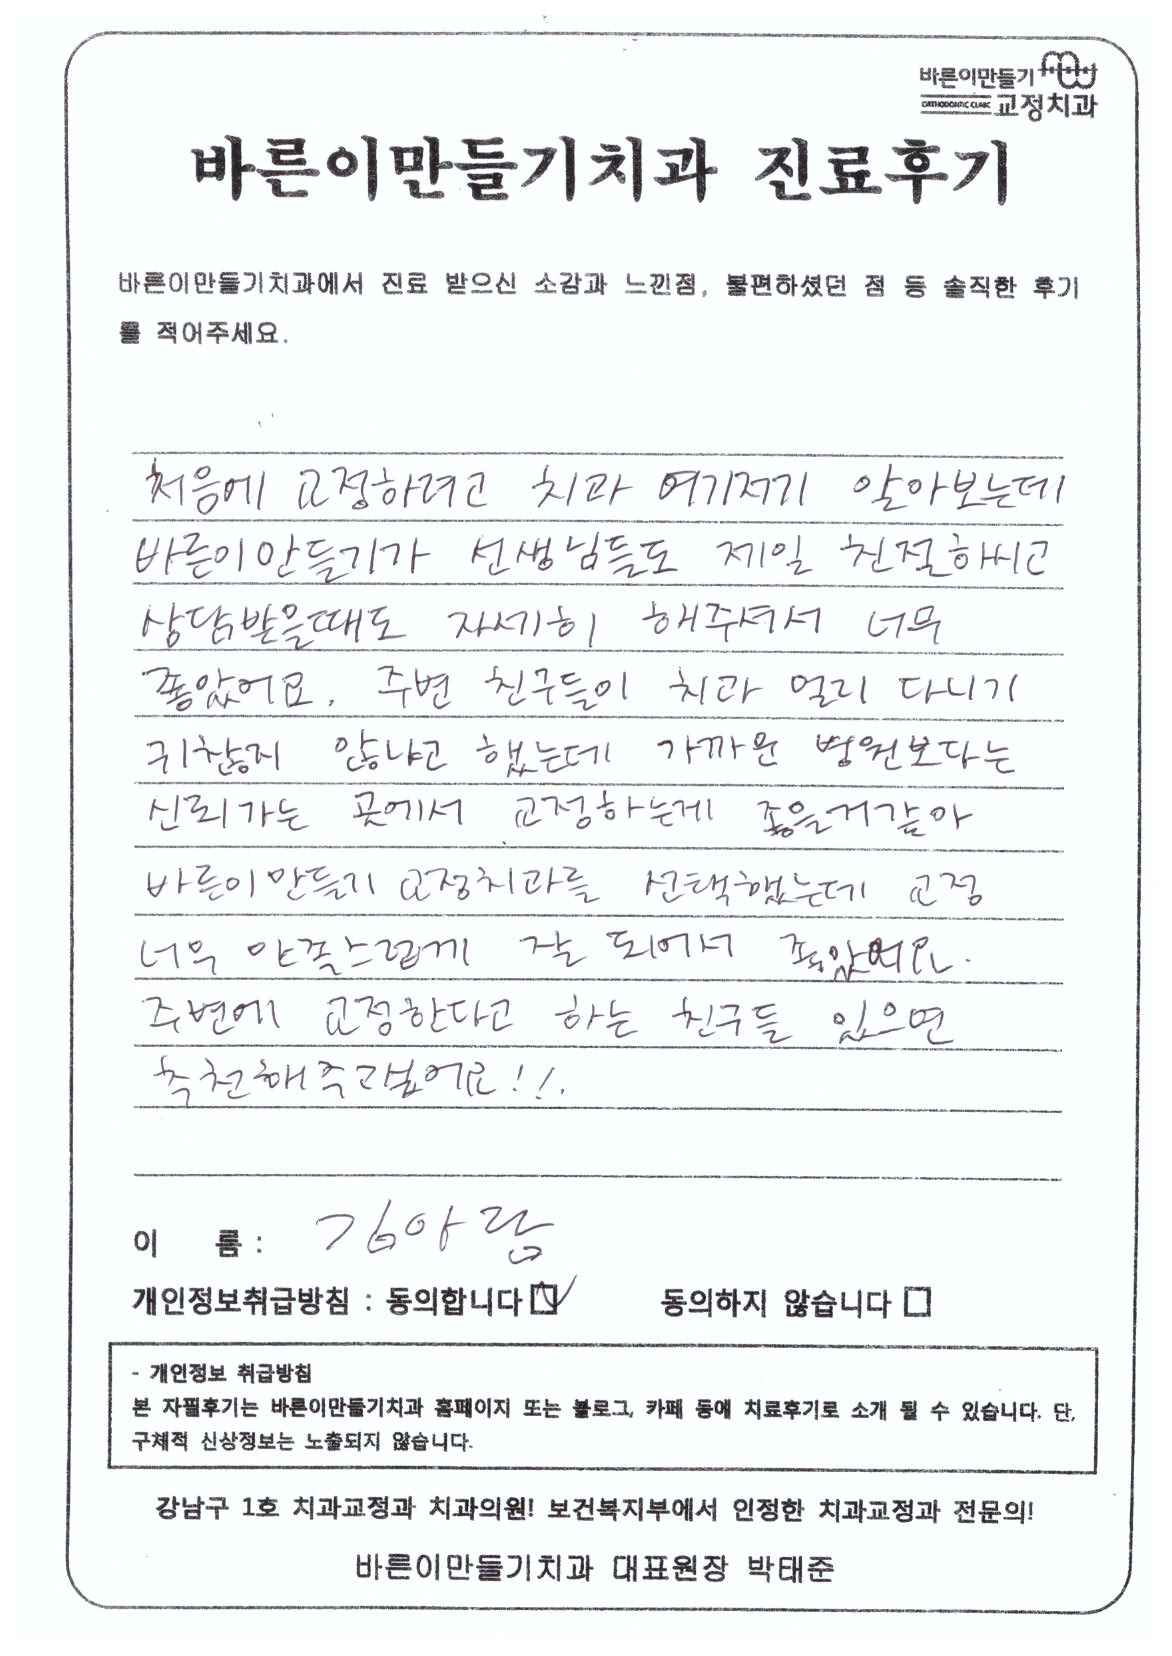 바른이만들기
ORTHODONTIC CLINIC 교정치과
바른이만들기치과 진료후기
바른이만들기치과에서 진료 받으신 소감과 느낀점, 불편하셨던 점 등 솔직한 후기
를 적어주세요.
처음에 교정하려고 치과 여기저기 알아보는데
바른이만들기가 선생님들도 제일 친절하씨고
상담받을때도 자세히 해주셔서 너무
좋았어요. 주변 친구들이 치과 멀리 다니기
귀찮지 않냐고 했는데 가까운 병원보다는
신뢰가는 곳에서 교정하는게 좋을거같아
바른이만들기 교정치과를 선택했는데 교정
너무 만족스럽게 잘 되어서 좋았어요.
주변에 교정한다고 하는 친구들 있으면
추천해주고싶어요!!.
이 름 : 김아람
개인정보취급방침 : 동의합니다 동의하지 않습니다
- 개인정보 취급방침
본 자필후기는 바른이만들기치과 홈페이지 또는 블로그, 카페 등에 치료후기로 소개 될 수 있습니다. 단,
구체적 신상정보는 노출되지 않습니다.
강남구 1호 치과교정과 치과의원! 보건복지부에서 인정한 치과교정과 전문의!
바른이만들기치과 대표원장 박태준